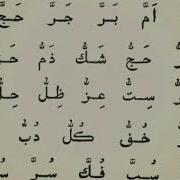 اَمَّ بَرَّ جَرَّ حَجَّ
حَجُّ شَكُّ ذَمُّ
سِتُّ عِزُّ ظِلُّ حِلُّ
خُفُّ كُلُّ دُبُّ
سُبَّ فُكَّ سُرَّ